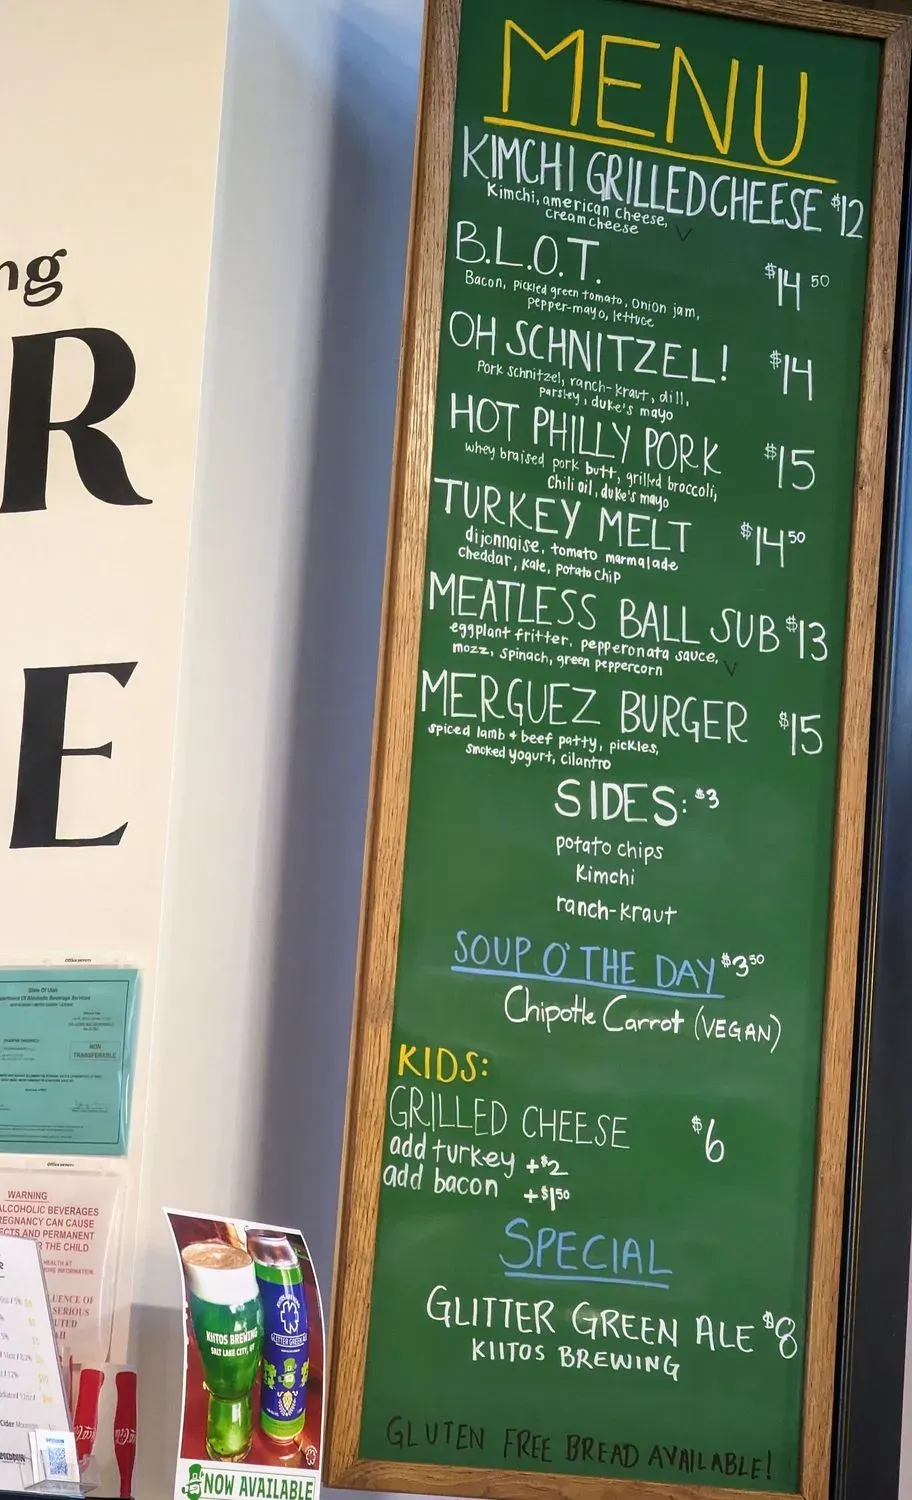 MENU
KIMCHI GRILLED CHEESE $12
Kimchi, american cheese,
cream cheese V
B.L.O.T. $14 50
Bacon, pickled green tomato, onion jam,
pepper-mayo, lettuce
OH SCHNITZEL! $14
Pork schnitzel, ranch-kraut, dill,
parsley, duke's mayo
HOT PHILLY PORK $15
whey braised pork butt, grilled broccoli,
chili oil, duke's mayo
TURKEY MELT $14 50
dijonnaise, tomato marmalade
cheddar, kale, potato chip
MEATLESS BALL SUB $13
eggplant fritter, pepperonata sauce,
mozz, spinach, green peppercorn V
MERGUEZ BURGER $15
spiced lamb + beef patty, pickles,
smoked yogurt, cilantro
SIDES: $3
potato chips
Kimchi
ranch-kraut
SOUP O' THE DAY $3 50
Chipotle Carrot (VEGAN)
KIDS:
GRILLED CHEESE $6
add turkey +$2
add bacon +$1 50
SPECIAL
GLITTER GREEN ALE $8
KIITOS BREWING
GLUTEN FREE BREAD AVAILABLE!
ng
R
E
State Of Utah
NON
TRANSFERABLE
WARNING
ALCOHOLIC BEVERAGES
REGNANCY CAN CAUSE
ECTS AND PERMANENT
R THE CHILD
HEALTH AT
MORE INFORMATION.
LUENCE OF
SERIOUS
KIITOS BREWING
SALT LAKE CITY, UT
GLITTER GREEN ALE
NOW AVAILABLE